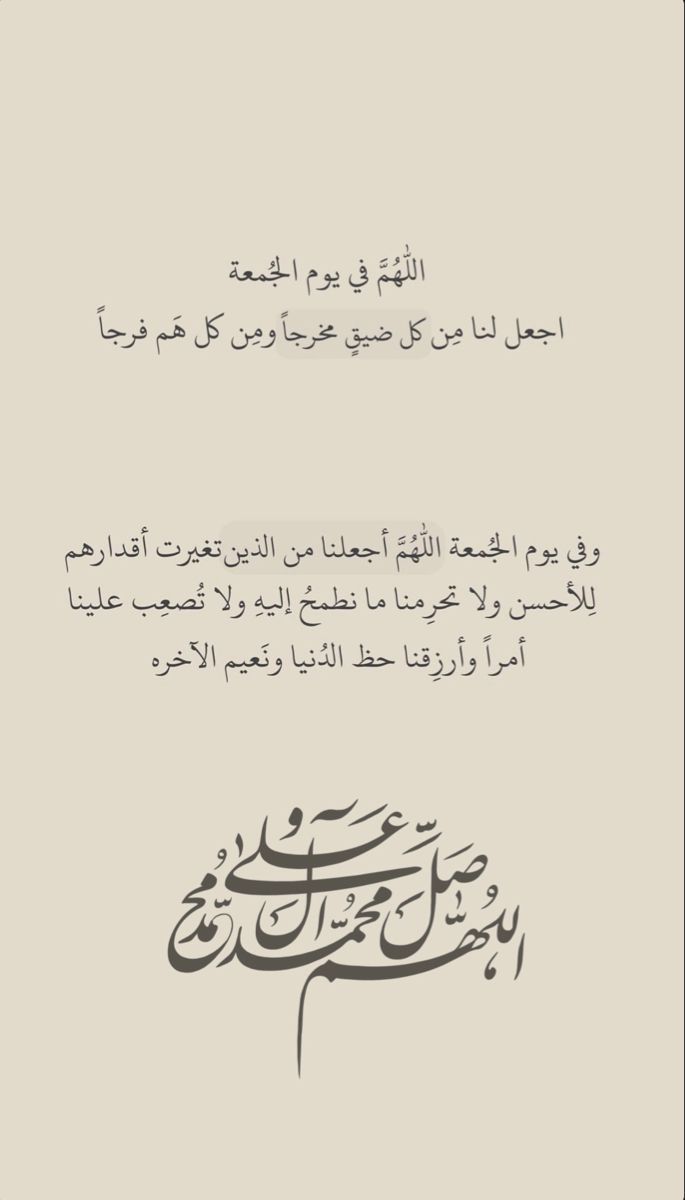 اللّٰهُمَّ في يوم الجُمعة
اجعل لنا مِن كل ضيقٍ مخرجاً ومِن كل هَم فرجاً
وفي يوم الجُمعة اللّٰهُمَّ أجعلنا من الذين تغيرت أقدارهم
لِلأحسن ولا تحرِمنا ما نطمحُ إليهِ ولا تُصعِب علينا
أمراً وأرزِقنا حظ الدُنيا ونَعيم الآخره
اللهُمَّ صَلِّ عَلى مُحمَّد وآل مُحمَّد